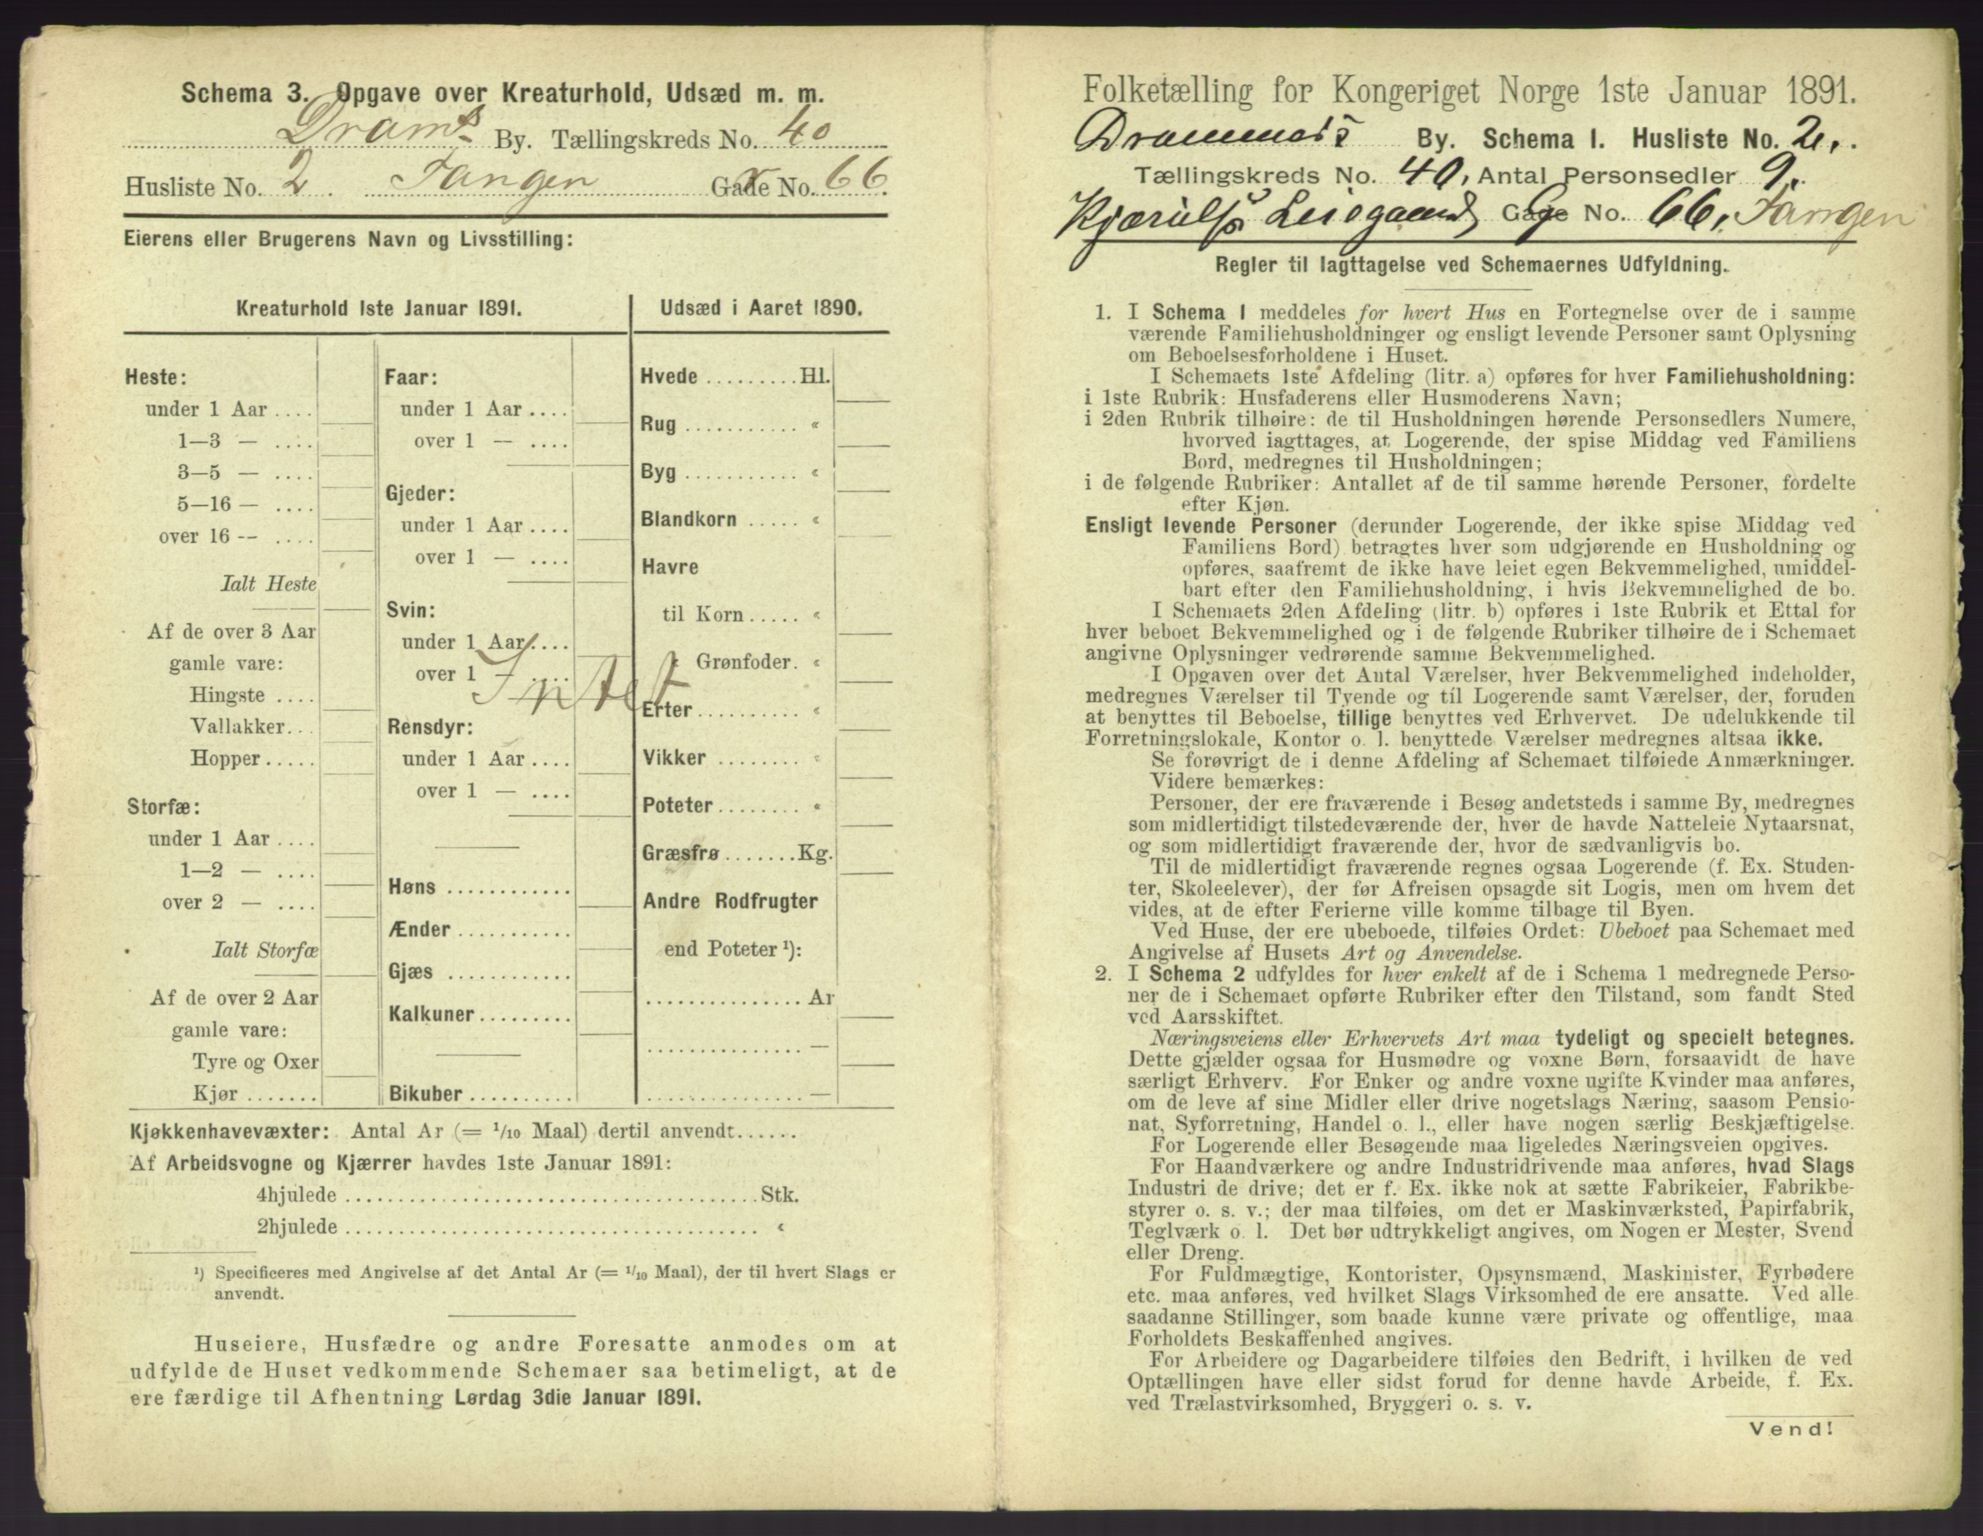 Schema 3. Opgave over Kreaturhold, Udsæd m. m.
Drams By. Tællingskreds No. 40
Husliste No. 2 Tangen Gade No. 66.
Eierens eller Brugerens Navn og Livsstilling:
Kreaturhold 1ste Januar 1891.
Heste:
under 1 Aar ....
1—3 — ....
3—5 — ....
5—16 — ....
over 16 -- ....
Ialt Heste
Af de over 3 Aar
gamle vare:
Hingste ....
Vallakker...
Hopper .....
Storfæ:
under 1 Aar ....
1—2 — ....
over 2 — ....
Ialt Storfæ
Af de over 2 Aar
gamle vare:
Tyre og Oxer
Kjør .......
Faar:
under 1 Aar ....
over 1 — ....
Gjeder:
under 1 Aar ....
over 1 — ....
Svin:
under 1 Aar ....
over 1 — ....
Intet
Rensdyr:
under 1 Aar ....
over 1 — ....
Høns ............
Ænder ...........
Gjæs ............
Kalkuner .........
Bikuber ..........
Udsæd i Aaret 1890.
Hvede ......... Hl.
Rug ........... "
Byg ........... "
Blandkorn ..... "
Havre
til Korn ..... "
" Grønfoder. "
Erter .......... "
Vikker ......... "
Poteter ........ "
Græsfrø ....... Kg.
Andre Rodfrugter
end Poteter ¹):
............... Ar
............... —
............... —
Kjøkkenhavevæxter: Antal Ar (= 1/10 Maal) dertil anvendt......
Af Arbeidsvogne og Kjærrer havdes 1ste Januar 1891:
4hjulede ........................................ Stk.
2hjulede ........................................ "
¹) Specificeres med Angivelse af det Antal Ar (= 1/10 Maal), der til hvert Slags er
anvendt.
Huseiere, Husfædre og andre Foresatte anmodes om at
udfylde de Huset vedkommende Schemaer saa betimeligt, at de
ere færdige til Afhentning Lørdag 3die Januar 1891.
Folketælling for Kongeriget Norge 1ste Januar 1891.
Drammens By. Schema I. Husliste No. 2.
Tællingskreds No. 40, Antal Personsedler 9.
Leiegaard Gade No. 66, Tangen
Regler til Iagttagelse ved Schemaernes Udfyldning.
1. I Schema 1 meddeles for hvert Hus en Fortegnelse over de i samme
værende Familiehusholdninger og ensligt levende Personer samt Oplysning
om Beboelsesforholdene i Huset.
I Schemaets 1ste Afdeling (litr. a) opføres for hver Familiehusholdning:
i 1ste Rubrik: Husfaderens eller Husmoderens Navn;
i 2den Rubrik tilhøire: de til Husholdningen hørende Personsedlers Numere,
hvorved iagttages, at Logerende, der spise Middag ved Familiens
Bord, medregnes til Husholdningen;
i de følgende Rubriker: Antallet af de til samme hørende Personer, fordelte
efter Kjøn.
Ensligt levende Personer (derunder Logerende, der ikke spise Middag ved
Familiens Bord) betragtes hver som udgjørende en Husholdning og
opføres, saafremt de ikke have leiet egen Bekvemmelighed, umiddel-
bart efter den Familiehusholdning, i hvis Bekvemmelighed de bo.
I Schemaets 2den Afdeling (litr. b) opføres i 1ste Rubrik et Ettal for
hver beboet Bekvemmelighed og i de følgende Rubriker tilhøire de i Schemaet
angivne Oplysninger vedrørende samme Bekvemmelighed.
I Opgaven over det Antal Værelser, hver Bekvemmelighed indeholder,
medregnes Værelser til Tyende og til Logerende samt Værelser, der, foruden
at benyttes til Beboelse, tillige benyttes ved Erhvervet. De udelukkende til
Forretningslokale, Kontor o. l. benyttede Værelser medregnes altsaa ikke.
Se forøvrigt de i denne Afdeling af Schemaet tilføiede Anmærkninger.
Videre bemærkes:
Personer, der ere fraværende i Besøg andetsteds i samme By, medregnes
som midlertidigt tilstedeværende der, hvor de havde Natteleie Nytaarsnat,
og som midlertidigt fraværende der, hvor de sædvanligvis bo.
Til de midlertidigt fraværende regnes ogsaa Logerende (f. Ex. Studen-
ter, Skoleelever), der før Afreisen opsagde sit Logis, men om hvem det
vides, at de efter Ferierne ville komme tilbage til Byen.
Ved Huse, der ere ubeboede, tilføies Ordet: Ubeboet paa Schemaet med
Angivelse af Husets Art og Anvendelse.
2. I Schema 2 udfyldes for hver enkelt af de i Schema 1 medregnede Perso-
ner de i Schemaet opførte Rubriker efter den Tilstand, som fandt Sted
ved Aarsskiftet.
Næringsveiens eller Erhvervets Art maa tydeligt og specielt betegnes.
Dette gjælder ogsaa for Husmødre og voxne Børn, forsaavidt de have
særligt Erhverv. For Enker og andre voxne ugifte Kvinder maa anføres,
om de leve af sine Midler eller drive nogetslags Næring, saasom Pensio-
nat, Syforretning, Handel o. l., eller have nogen særlig Beskjæftigelse.
For Logerende eller Besøgende maa ligeledes Næringsveien opgives.
For Haandværkere og andre Industridrivende maa anføres, hvad Slags
Industri de drive; det er f. Ex. ikke nok at sætte Fabrikeier, Fabrikbe-
styrer o. s. v.; der maa tilføies, om det er Maskinværksted, Papirfabrik,
Teglværk o. l. Det bør udtrykkeligt angives, om Nogen er Mester, Svend
eller Dreng.
For Fuldmægtige, Kontorister, Opsynsmænd, Maskinister, Fyrbødere
etc. maa anføres, ved hvilket Slags Virksomhed de ere ansatte. Ved alle
saadanne Stillinger, som baade kunne være private og offentlige, maa
Forholdets Beskaffenhed angives.
For Arbeidere og Dagarbeidere tilføies den Bedrift, i hvilken de ved
Optællingen have eller sidst forud for denne havde Arbeide, f. Ex.
ved Trælastvirksomhed, Bryggeri o. s. v.
Vend!